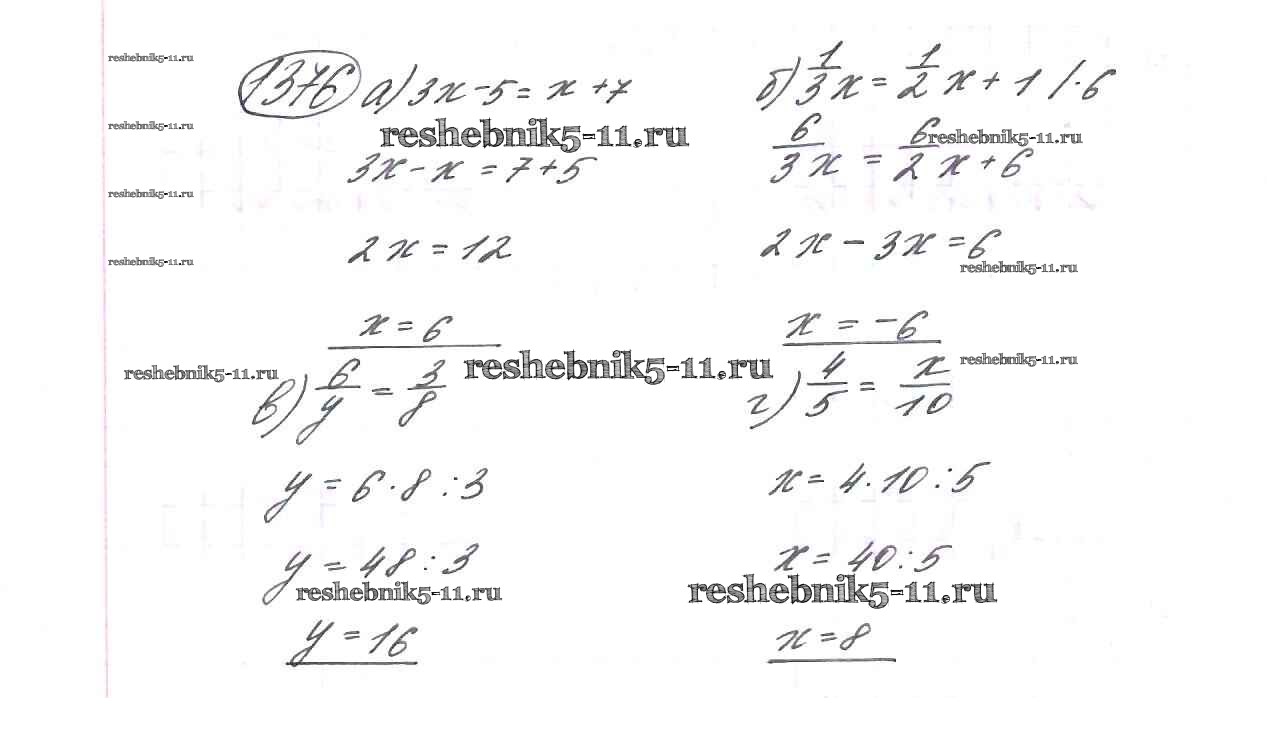 reshebnik5-11.ru
1376 а) 3x - 5 = x + 7
б) 1/3 x = 1/2 x + 1 / · 6
reshebnik5-11.ru
reshebnik5-11.ru
6/3 x = 6/2 x + 6
reshebnik5-11.ru
3x - x = 7 + 5
reshebnik5-11.ru
2x = 12
2x - 3x = 6
reshebnik5-11.ru
reshebnik5-11.ru
x = 6
x = -6
reshebnik5-11.ru
в) 6/y = 3/8
reshebnik5-11.ru
г) 4/5 = x/10
reshebnik5-11.ru
y = 6 · 8 : 3
x = 4 · 10 : 5
y = 48 : 3
x = 40 : 5
reshebnik5-11.ru
reshebnik5-11.ru
y = 16
x = 8